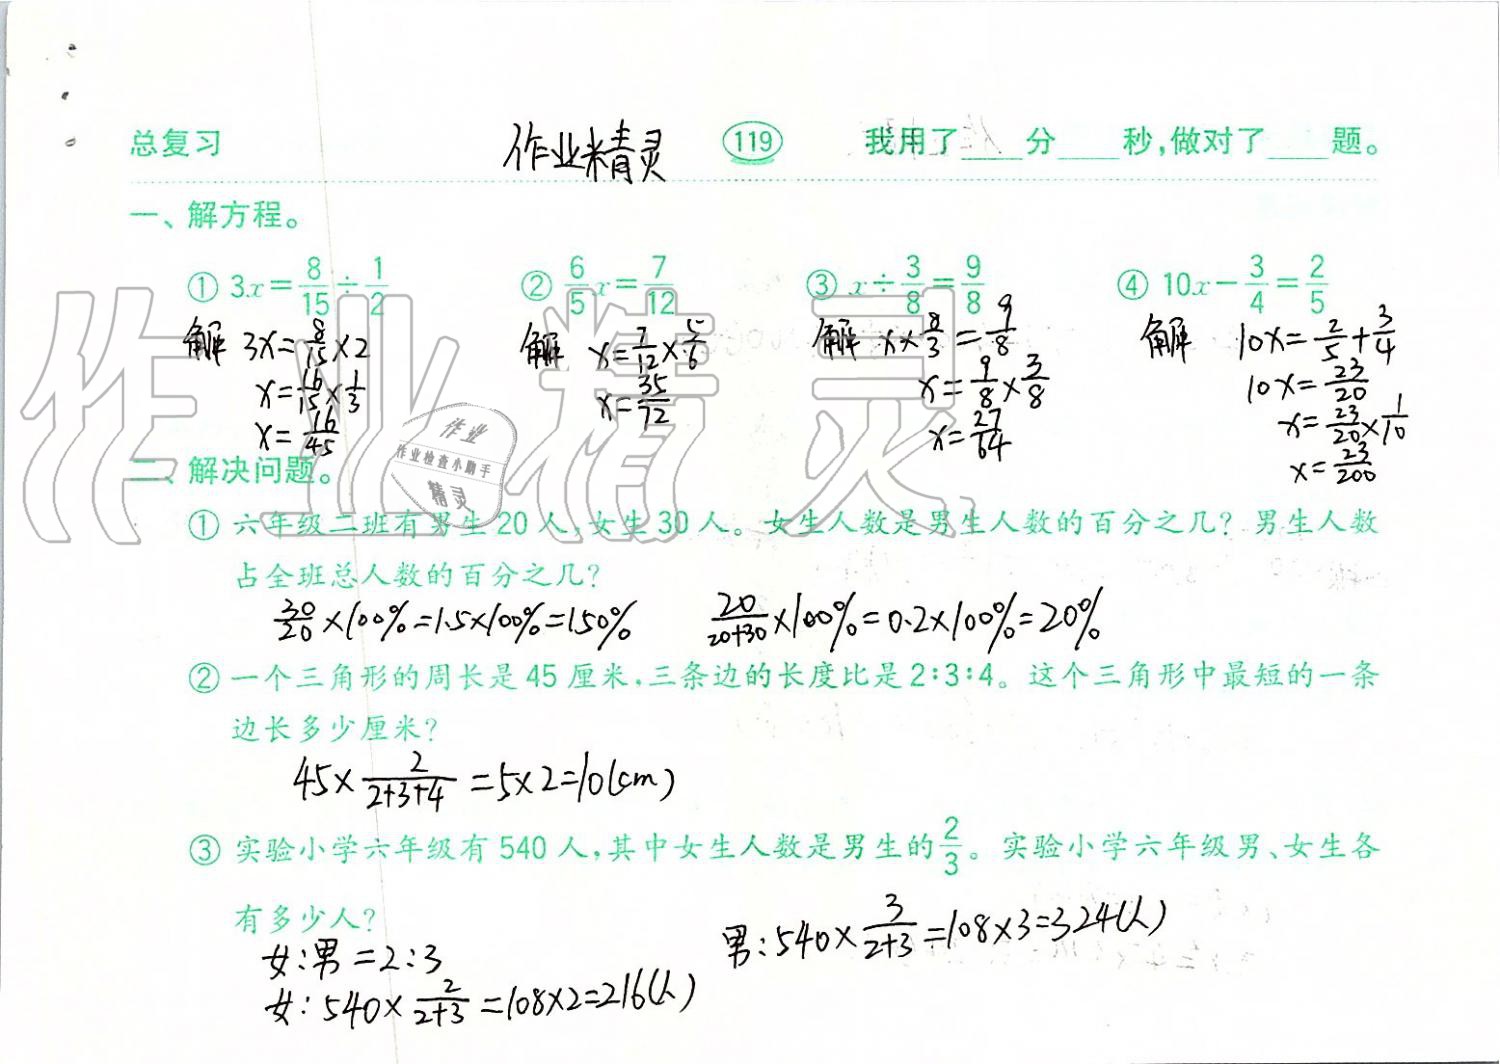 总复习 作业精灵 119 我用了____分____秒,做对了____题。
一、解方程。
① 3x=8/15÷1/2 ② 6/5x=7/12 ③ x÷3/8=9/8 ④ 10x-3/4=2/5
解 3x=8/15×2 解 x=7/12×5/6 解 x×8/3=9/8 解 10x=2/5+3/4
x=16/15×1/3 x=35/72 x=9/8×3/8 10x=23/20
x=16/45 x=27/64 x=23/20×1/10
x=23/200
作业
作业检查小助手
精灵
作业精灵
二、解决问题。
① 六年级二班有男生20人,女生30人。女生人数是男生人数的百分之几?男生人数
占全班总人数的百分之几?
30/20×100%=1.5×100%=150% 20/(20+30)×100%=0.2×100%=20%
② 一个三角形的周长是45厘米,三条边的长度比是2:3:4。这个三角形中最短的一条
边长多少厘米?
45×2/(2+3+4)=5×2=10(cm)
③ 实验小学六年级有540人,其中女生人数是男生的2/3。实验小学六年级男、女生各
有多少人?
女:男=2:3 男:540×3/(2+3)=108×3=324(人)
女:540×2/(2+3)=108×2=216(人)